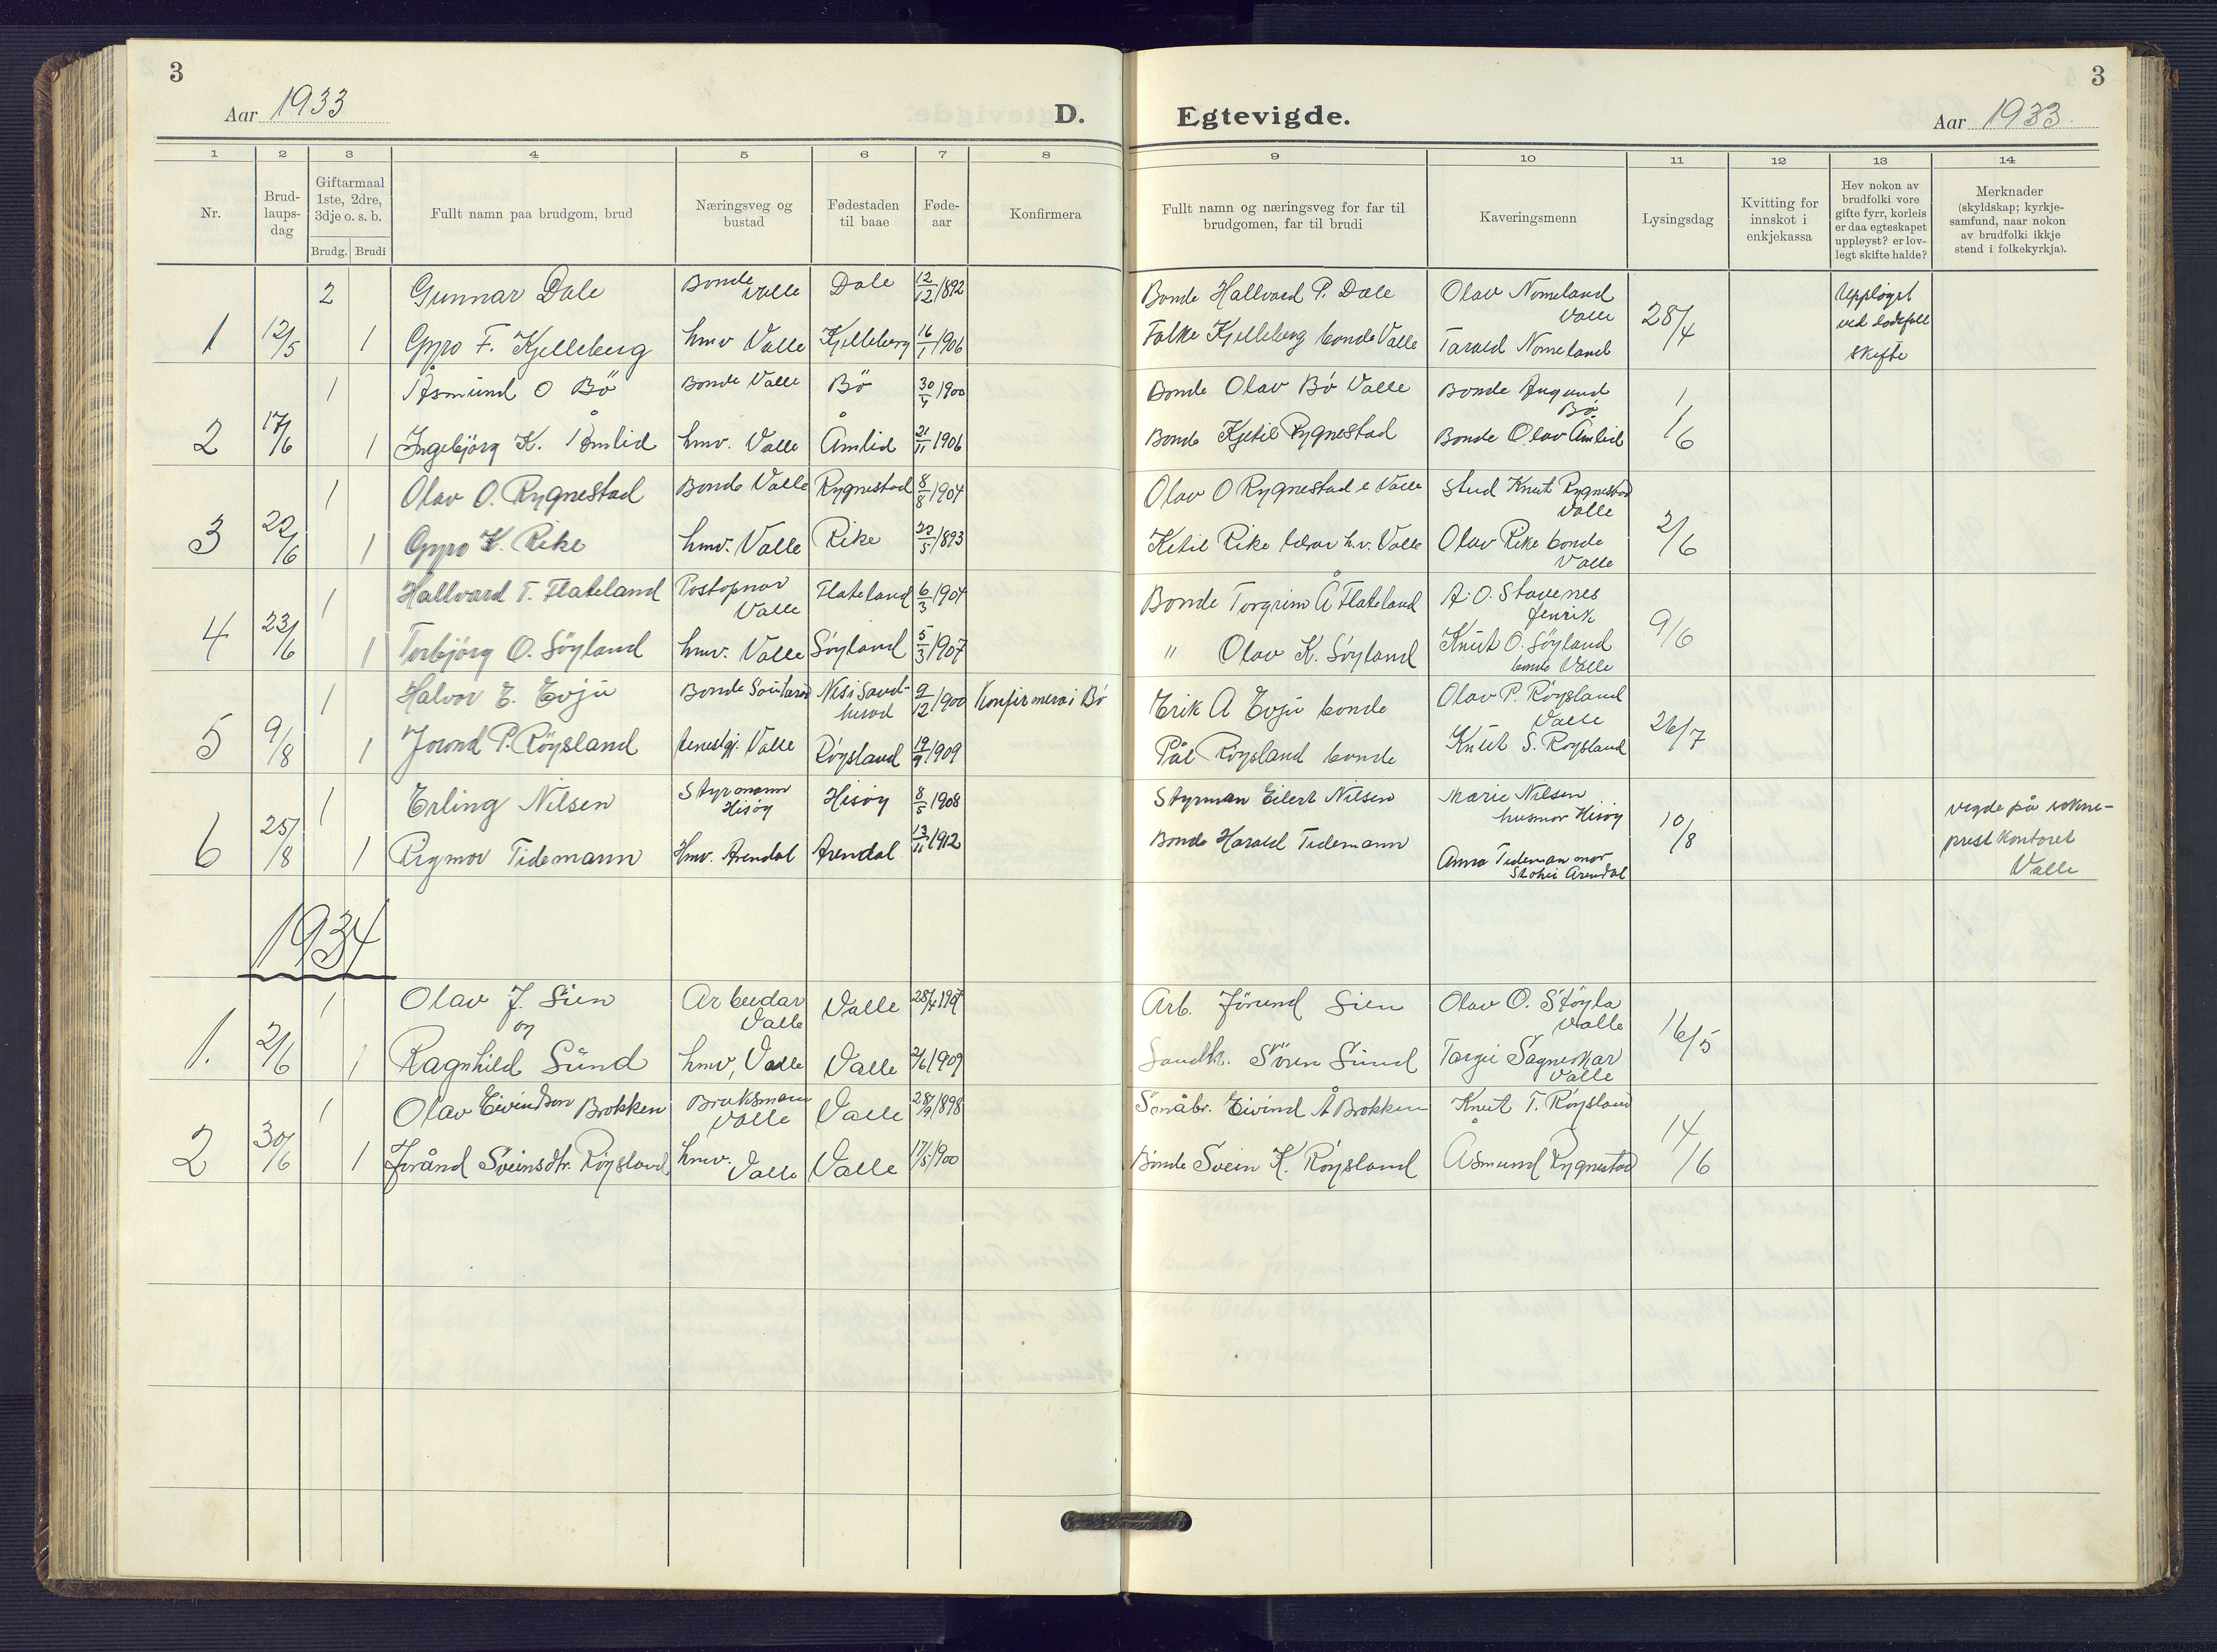 3
Aar 1933
D.
1 2 3 4 5 6 7 8
Nr.
Brud-
laups-
dag
Giftarmaal
1ste, 2dre,
3dje o. s. b.
Brudg. Brudi
Fullt namn paa brudgom, brud
Næringsveg og
bustad
Fødestaden
til baae
Føde-
aar
Konfirmera
2 Gunnar Dale Bonde Valle Dale 12/12 1892
1 12/5 1 Gyro F. Kjelleberg hmv Valle Kjelleberg 16/1 1906
1 Åsmund O Bö Bonde Valle Bö 30/4 1900
2 17/6 1 Ingebjörg K. Åmlid hmv. Valle Åmlid 21/11 1906
1 Olav O. Rygnestad Bonde Valle Rygnestad 8/8 1904
3 22/6 1 Gyro K. Rike hmv. Valle Rike 22/5 1893
1 Hallvard T. Flateland Postopnar Valle Flateland 6/3 1904
4 23/6 1 Torbjörg O. Söyland hmv. Valle Söyland 5/3 1907
1 Halvor E. Evju Bonde Nesi Saud-
herad 9/12 1900 Konfirmera i Bö
5 9/8 1 Jorond P. Röysland tenestgj. Valle Röysland 19/9 1909
1 Erling Nilsen Styrmann Hisöy Hisöy 8/5 1908
6 25/8 1 Rigmor Tidemann Hmv. Arendal Arendal 13/11 1912
1934
1 Olav J. Sien Arbeidar Valle Valle 28/4 1907
og
1. 2/6 1 Ragnhild Sund hmv, Valle Valle 2/6 1909
1 Olav Eivindson Brokken Bruksmann Valle Valle 28/9 1898
2 30/6 1 Jorånd Sveinsdtr. Röysland hmv. Valle Valle 17/5 1900
Egtevigde.
3
Aar 1933.
9 10 11 12 13 14
Fullt namn og næringsveg for far til
brudgomen, far til brudi
Kaveringsmenn
Lysingsdag
Kvitting for
innskot i
enkjekassa
Hev nokon av
brudfolki vore
gifte fyrr, korleis
er daa egteskapet
uppløyst? er lov-
legt skifte halde?
Merknader
(skyldskap; kyrkje-
samfund, naar nokon
av brudfolki ikkje
stend i folkekyrkja).
Bonde Hallvard P. Dale Olav Nomeland Valle 28/4 Upplöyst
ved dödsfall
skifte
Falke Kjelleberg bonde Valle Tarald Nomeland
Bonde Olav Bö Valle Bonde Bö 1/6
Bonde Kjetil Rygnestad Bonde Olav Åmlid
Olav O Rygnestad Valle Stud Knut Rygnestad Valle 2/6
Ketil Rike h.v. Valle Olav Rike bonde Valle
Bonde Torgrim Å Flateland A. O. Stavenes fenrik 9/6
" Olav K. Söyland Knut O. Söyland bonde Valle
Erik A Evju bonde Olav P. Röysland Valle 26/7
Pål Röysland bonde Knut S. Röysland
Styrman Eilert Nilsen Marie Nilsen husmor Hisöy 10/8 vigde på sokne-
prestkontoret
Valle
Bonde Harald Tidemann Anna Tideman mor Arendal
Arb. Jörund Sien Olav O. Stöyla Valle 16/5
Sören Sund Targei Sagneskar Valle
Småbr. Eivind Å Brokken Knut T. Röysland 14/6
Bonde Svein K. Röysland Åsmund Rygnestad